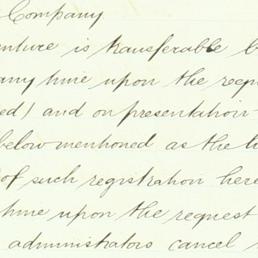 Company
enture is transferable b
any time upon the requ
ed) and on presentation
below mentioned as the h
of such registration here
time upon the request
administrators cancel